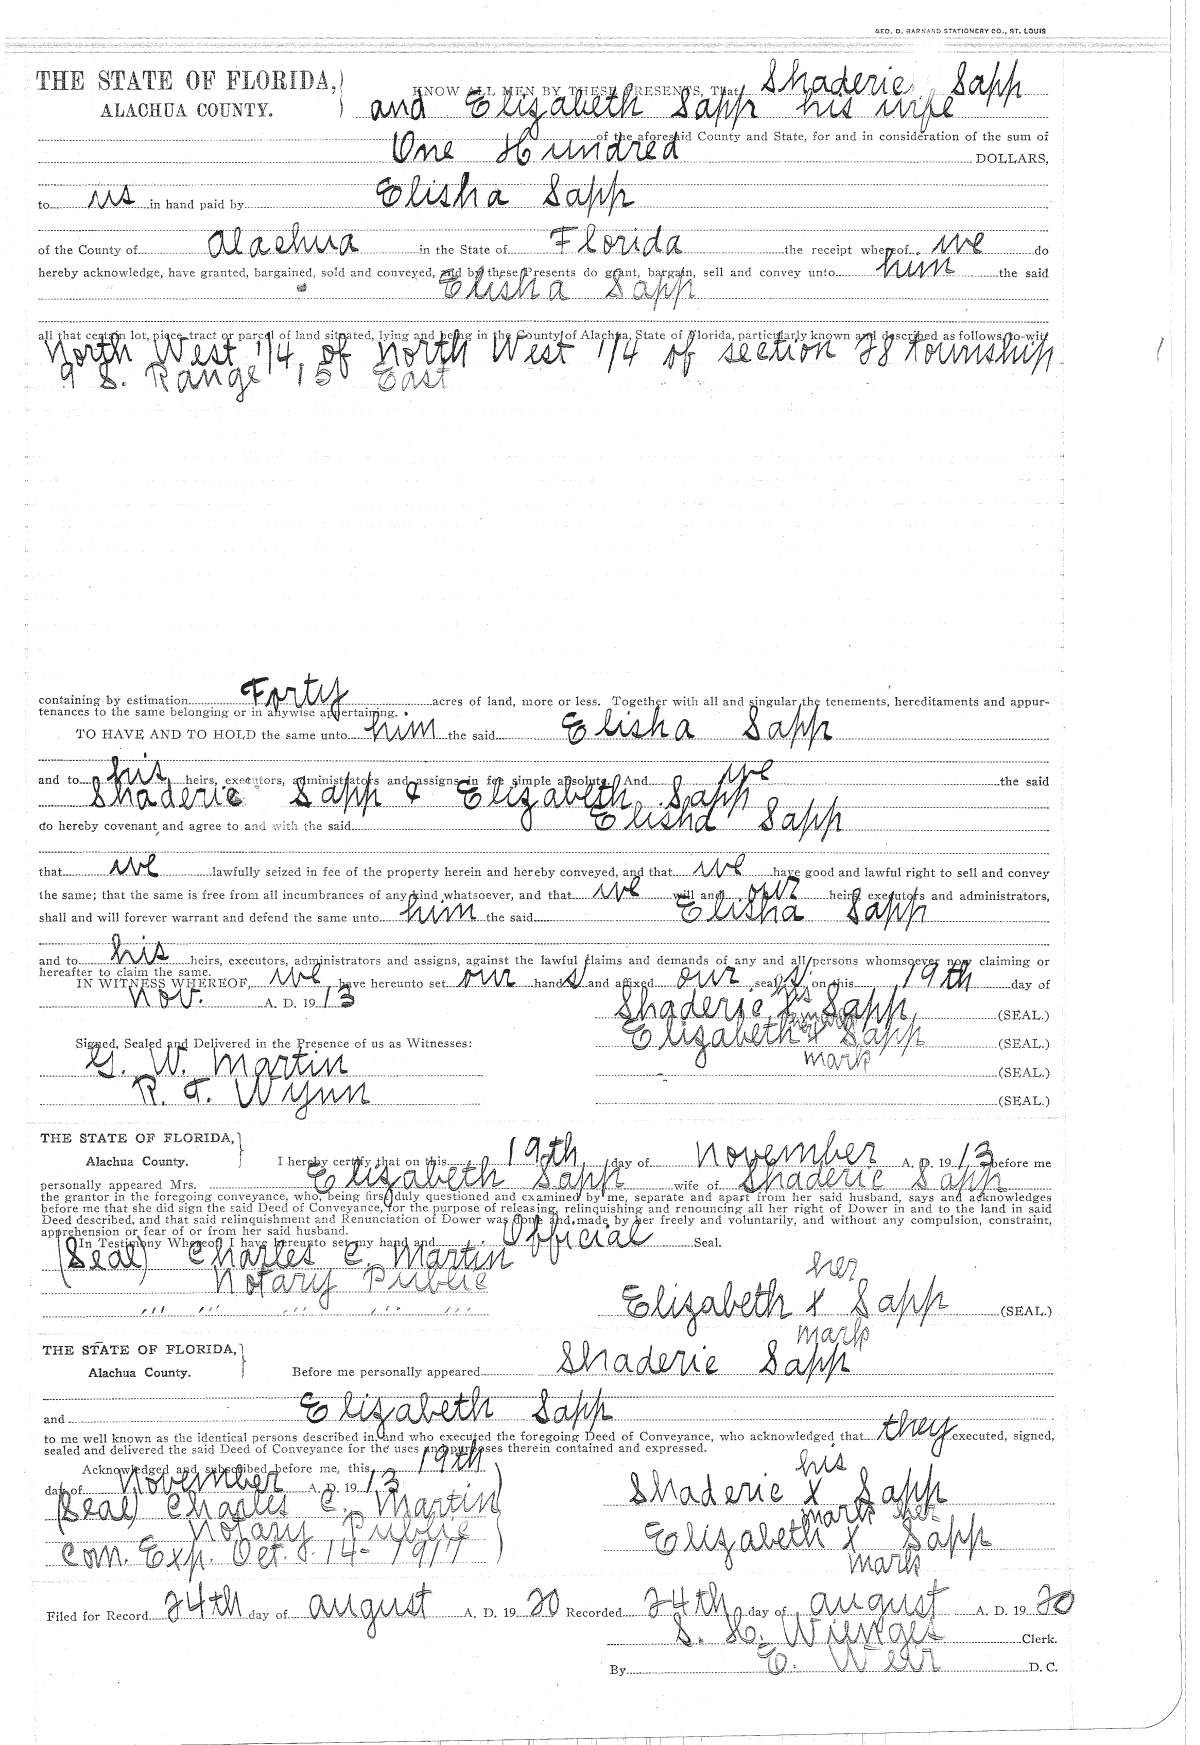 GEO. D. BARNARD STATIONERY CO., ST. LOUIS
THE STATE OF FLORIDA,
KNOW ALL MEN BY THESE PRESENTS, That Shaderic Sapp
ALACHUA COUNTY.
and Elizabeth Sapp his wife
of the aforesaid County and State, for and in consideration of the sum of
One Hundred DOLLARS,
to us in hand paid by Elisha Sapp
of the County of Alachua in the State of Florida the receipt whereof we do
hereby acknowledge, have granted, bargained, sold and conveyed, and by these Presents do grant, bargain, sell and convey unto him the said
Elisha Sapp
all that certain lot, piece, tract or parcel of land situated, lying and being in the County of Alachua, State of Florida, particularly known and described as follows, to-wit
North West 1/4, of North West 1/4 of section 28 Township
9 S. Range 15 East
containing by estimation Forty acres of land, more or less. Together with all and singular the tenements, hereditaments and appur-
tenances to the same belonging or in anywise appertaining.
TO HAVE AND TO HOLD the same unto him the said Elisha Sapp
and to his heirs, executors, administrators and assigns in fee simple absolute. And we the said
Shaderic Sapp & Elizabeth Sapp
do hereby covenant and agree to and with the said Elisha Sapp
that we lawfully seized in fee of the property herein and hereby conveyed, and that we have good and lawful right to sell and convey
the same; that the same is free from all incumbrances of any kind whatsoever, and that we will and our heirs, executors and administrators,
shall and will forever warrant and defend the same unto him the said Elisha Sapp
and to his heirs, executors, administrators and assigns, against the lawful claims and demands of any and all persons whomsoever now claiming or
hereafter to claim the same.
IN WITNESS WHEREOF, we have hereunto set our hand s and affixed our seal s on this 19th day of
Nov. A. D. 19 13
Shaderic his x Sapp (SEAL.)
Elizabeth her x Sapp (SEAL.)
mark
Signed, Sealed and Delivered in the Presence of us as Witnesses:
G. W. Martin (SEAL.)
R. T. Wynn (SEAL.)
THE STATE OF FLORIDA,
Alachua County. I hereby certify that on this 19th day of November A. D. 19 13 before me
personally appeared Mrs. Elizabeth Sapp wife of Shaderic Sapp
the grantor in the foregoing conveyance, who, being first duly questioned and examined by me, separate and apart from her said husband, says and acknowledges
before me that she did sign the said Deed of Conveyance, for the purpose of releasing, relinquishing and renouncing all her right of Dower in and to the land in said
Deed described, and that said relinquishment and Renunciation of Dower was done and made by her freely and voluntarily, and without any compulsion, constraint,
apprehension or fear of or from her said husband.
In Testimony Whereof I have hereunto set my hand and Official Seal.
(Seal) Charles C. Martin
Notary Public
her
Elizabeth x Sapp (SEAL.)
mark
THE STATE OF FLORIDA,
Alachua County. Before me personally appeared Shaderic Sapp
and Elizabeth Sapp
to me well known as the identical persons described in, and who executed the foregoing Deed of Conveyance, who acknowledged that they executed, signed,
sealed and delivered the said Deed of Conveyance for the uses and purposes therein contained and expressed.
Acknowledged and subscribed before me, this 19th
day of November A. D. 19 13
his
Shaderic x Sapp
mark her
(Seal) Charles C. Martin
Notary Public
Elizabeth x Sapp
mark
Com. Exp. Oct. 14-1917
Filed for Record 24th day of August A. D. 19 20 Recorded 24th day of August A. D. 19 20
S. H. Wienges Clerk.
By E. Weir D. C.